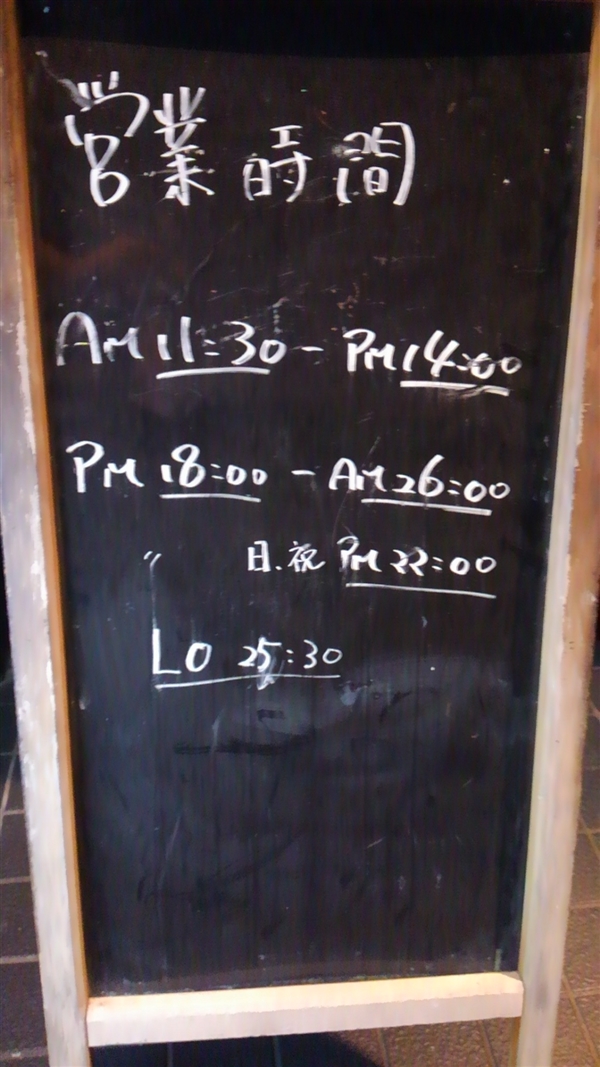 営業時間
AM 11:30 - PM 14:00
PM 18:00 - AM 26:00
〃 日.祝 PM 22:00
LO 25:30